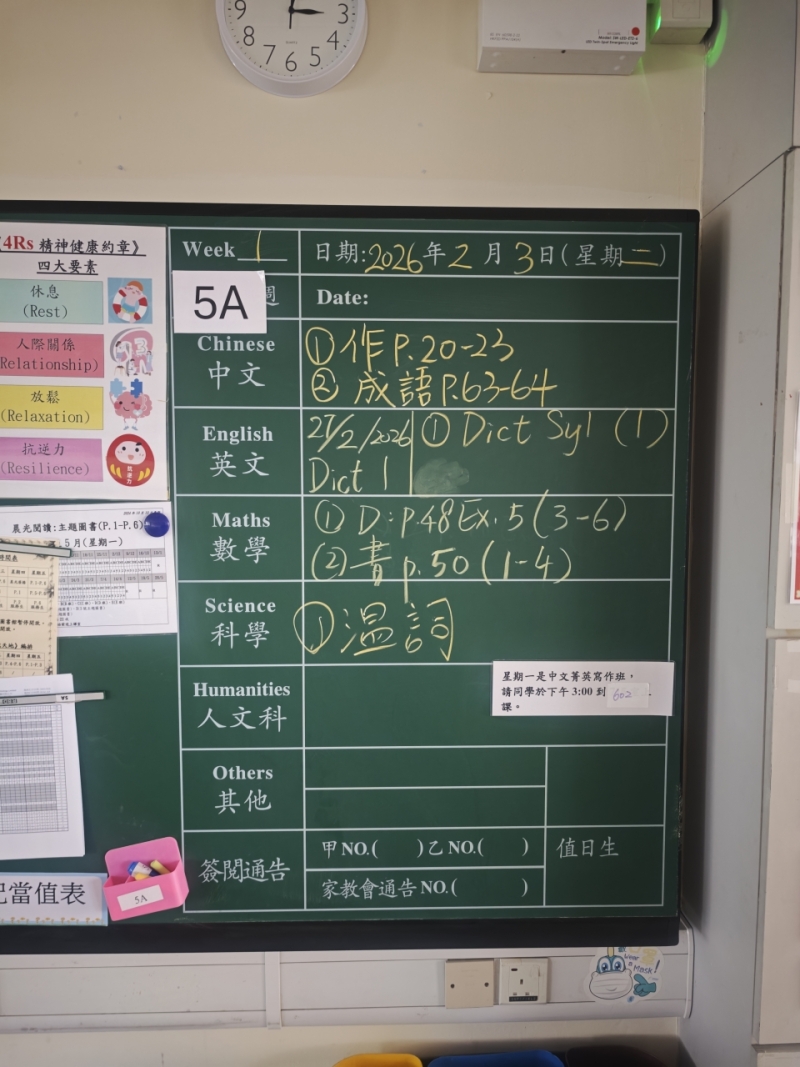 9 8 7 6 5 4 3
《4Rs 精神健康約章》
四大要素
休息
(Rest)
人際關係
(Relationship)
放鬆
(Relaxation)
抗逆力
(Resilience)
抗逆力
晨光閱讀:主題圖書(P.1-P.6)
5月(星期一)
當值表
5A
Week 1
日期:2026年2月3日(星期二)
5A
週
Date:
Chinese
中文
①作P.20-23
②成語P.63-64
English
英文
27/2/2026
Dict 1
① Dict Syl (1)
Maths
數學
① D: p.48 Ex. 5 (3-6)
(2) 書 p.50 (1-4)
Science
科學
① 溫詞
Humanities
人文科
星期一是中文菁英寫作班,
請同學於下午 3:00 到 602
課。
Others
其他
簽閱通告
甲NO.( )乙NO.( )
家教會通告NO.( )
值日生
Wear a Mask!